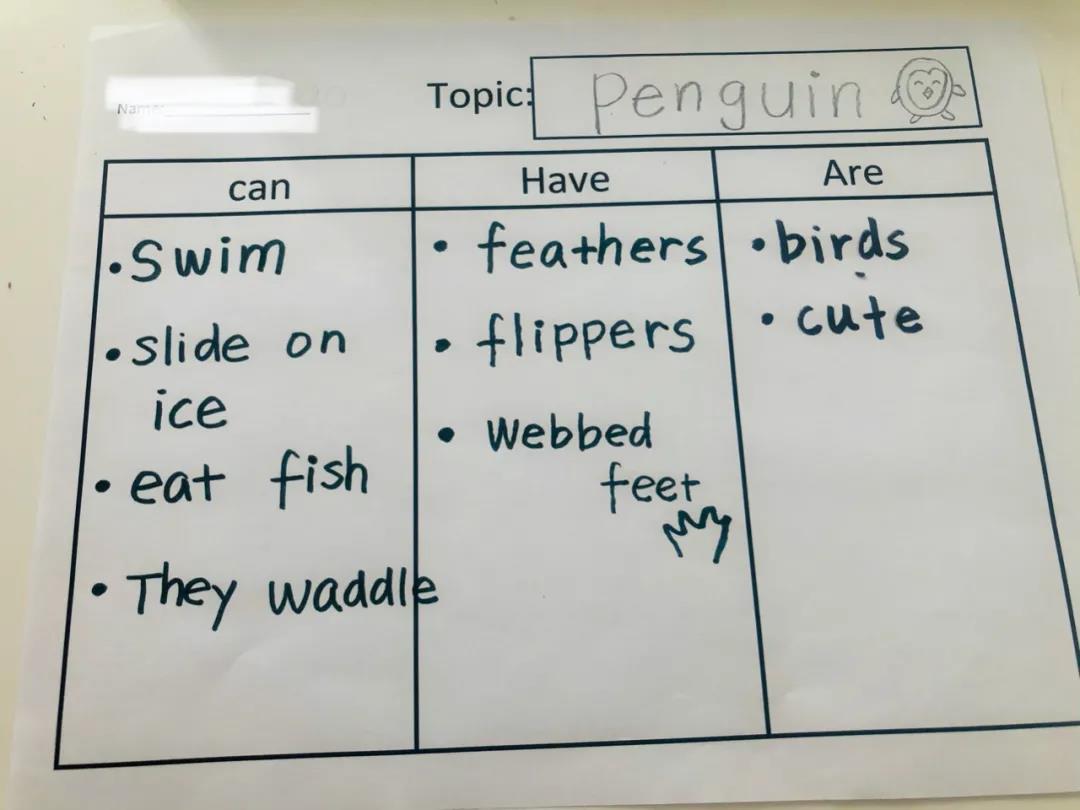 Name:
Topic: Penguin
can
Have
Are
• Swim
• slide on
ice
• eat fish
• They waddle
• feathers
• flippers
• Webbed
feet
• birds
• cute